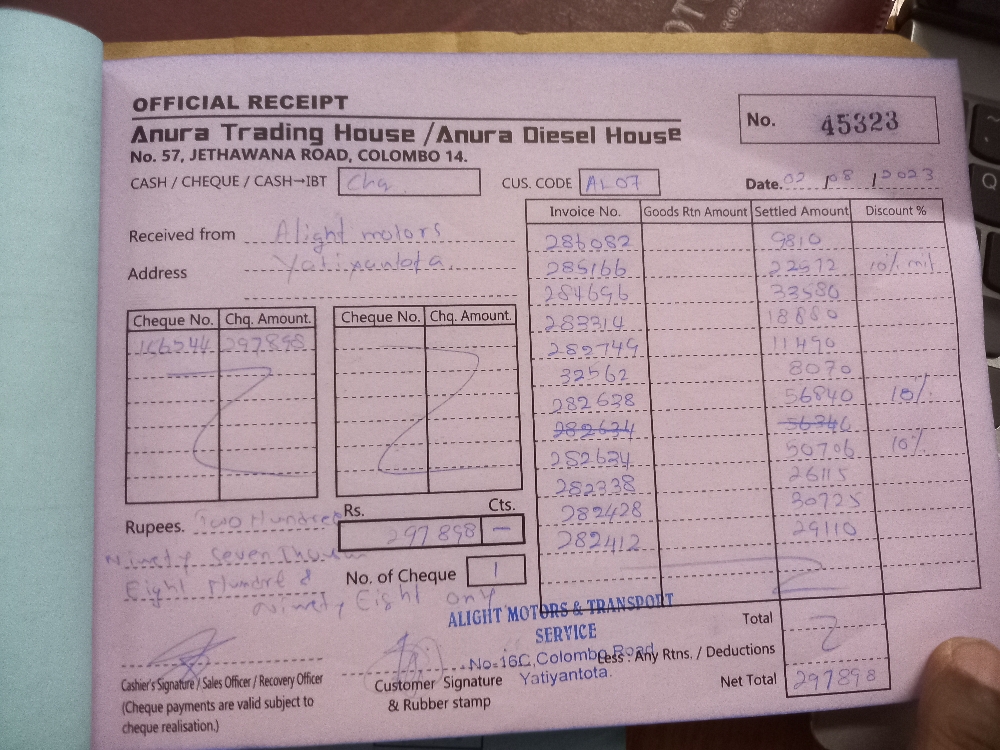 OFFICIAL RECEIPT
Anura Trading House /Anura Diesel House
No. 57, JETHAWANA ROAD, COLOMBO 14.
No. 45323
CASH / CHEQUE / CASH→IBT Chq
CUS. CODE AL07
Date. 02 / 08 / 2023
Received from Alight motors
Address Yatiyantota.
Cheque No. Chq. Amount. Cheque No. Chq. Amount.
166544 297898
Invoice No. Goods Rtn Amount Settled Amount Discount %
286082 9810
285166 22572 10%
284696 33580
283314 18880
282749 11490
32562 8070
282638 56840 10%
282634
282634 50706 10%
282338 26115
282428 30725
282412 29110
Rupees. Two Hundred
Ninety Seven Thousan
Eight Hundred &
Ninety Eight only
Rs. Cts.
297 898 —
No. of Cheque 1
ALIGHT MOTORS & TRANSPORT
SERVICE
No-16C, Colombo Road
Yatiyantota.
Total
Less : Any Rtns. / Deductions
Net Total 297898
Cashier's Signature / Sales Officer / Recovery Officer
(Cheque payments are valid subject to
cheque realisation.)
Customer Signature
& Rubber stamp